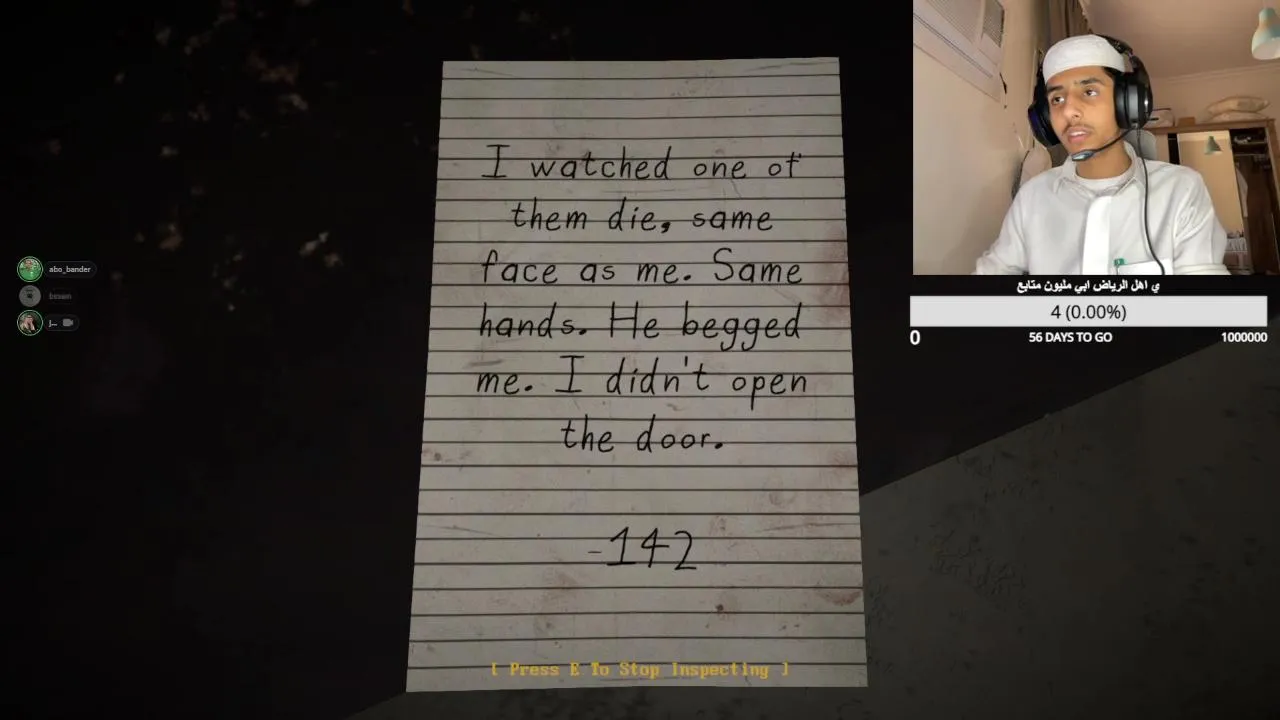 I watched one of
them die, same
face as me. Same
hands. He begged
me. I didn't open
the door.
-142
[ Press E To Stop Inspecting ]
abo_bander
bssan
J--
ي اهل الرياض ابي مليون متابع
4 (0.00%)
0 56 DAYS TO GO 1000000